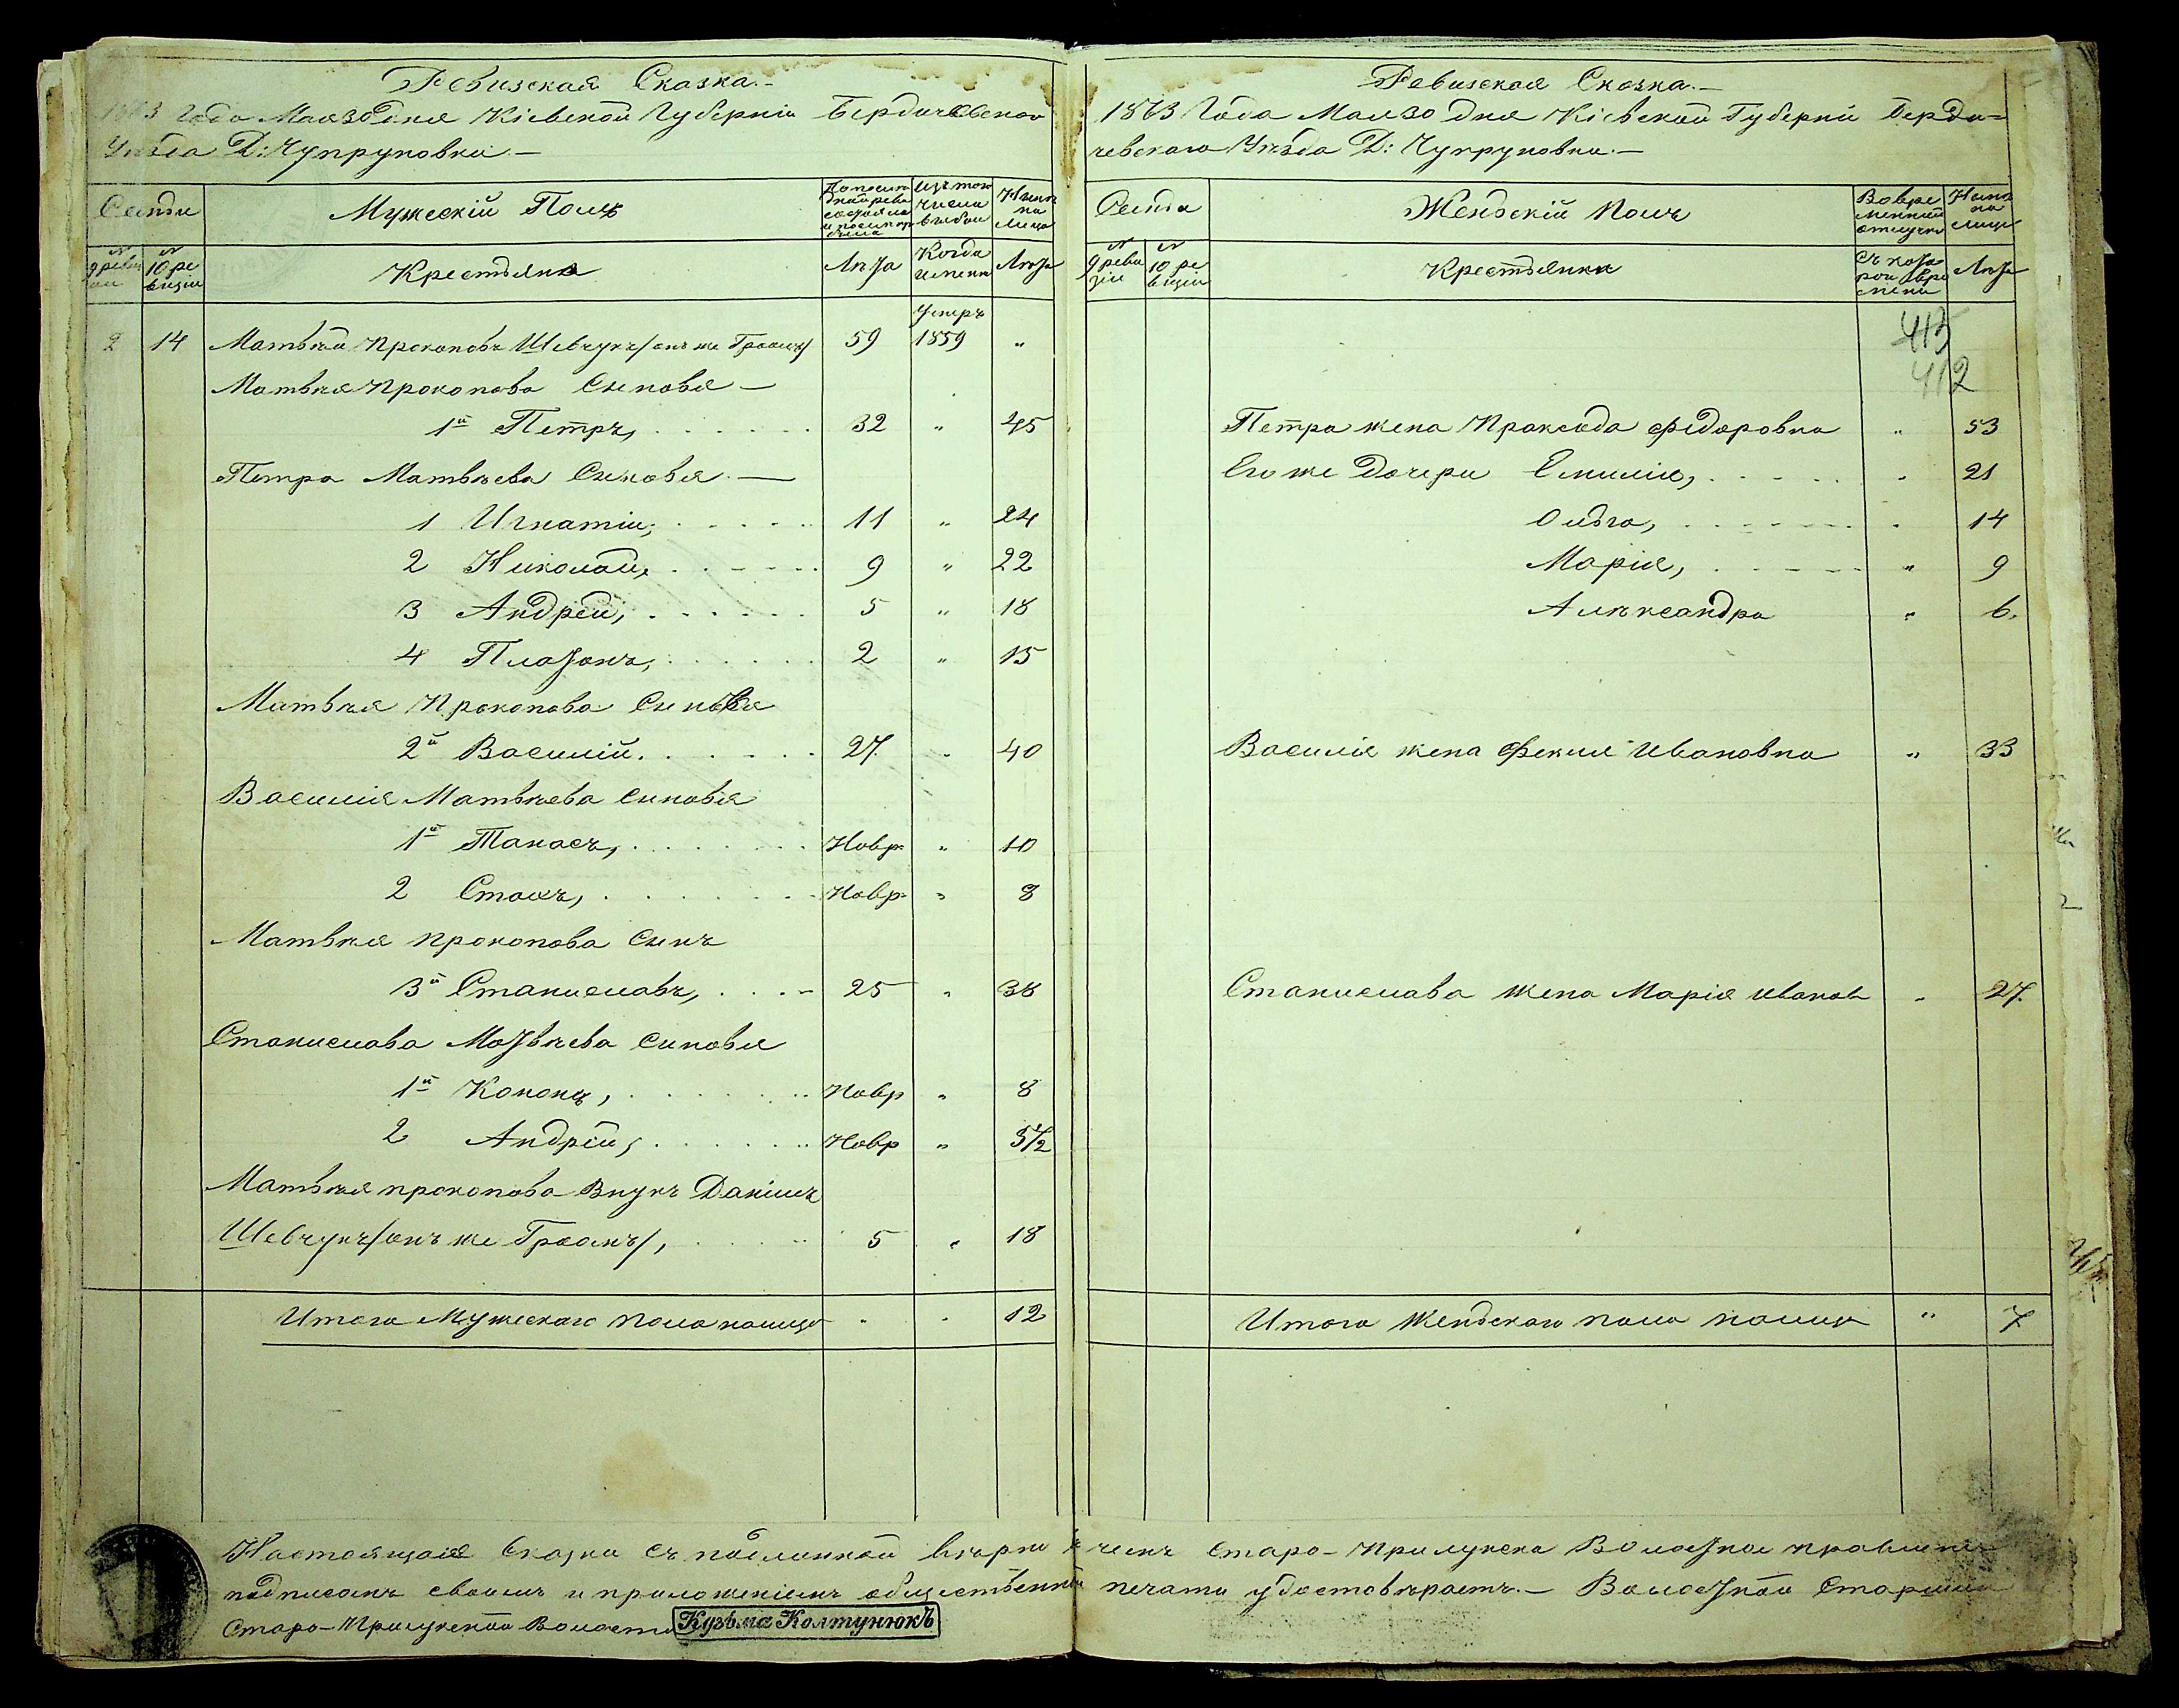 Ревизская Сказка.-
1863 года Мая 30 дня Кіевской Губерніи Бердичевскаго
Уѣзда Д: Чупруновки.—
Семьи
Мужескій Полъ
По послѣдней ревизіи состояло и послѣ прибыло
Изъ того числа выбыло
Нынѣ на лицо
№ 9 ревизіи
№ 10 ревизіи
Крестьяне
Лѣта
Когда именно
Лѣта
Умеръ
9 14 Матвѣй Прокоповъ Шевчукъ /онъ же Гроомъ/ 59 1859 "
Матвѣя Прокопова Сыновья —
1й Петръ, 32 " 45
Петра Матвѣева Сыновья. —
1 Игнатій, 11 " 24
2 Николай, 9 " 22
3 Андрей, 5 " 18
4 Платонъ, 2 " 15
Матвѣя Прокопова Сыновья
2й Василій. 27. " 40
Василія Матвѣева сыновья
1й Танасъ, Новр. " 10
2 Стахъ, Новр. " 8
Матвѣя Прокопова Сынъ
3й Станиславъ, 25 " 38
Станислава Матвѣева сыновья
1й Кононъ, Новр " 8
2 Андрей, Новр " 3 1/2
Матвѣя прокопова Внукъ Даніилъ
Шевчукъ /онъ же Гроомъ/, 5 " 18
Итого Мужескаго пола налицо " " 12
Ревизская Сказка.—
1863 Года Мая 30 дня Кіевской Губерніи Берди=
чевскаго Уѣзда Д: Чупруновки.—
Семья
Женскій Полъ
Во временной отлучкѣ
Нынѣ на лицо
№ 9 ревизіи
№ 10 ревизіи
Крестьянки
Съ котораго времени
Лѣта
413
412
Петра жена Проксѣда Федоровна " 53
Его же Дочери Емилія, " 21
Ольга, " 14
Марія, " 9
Александра " 6.
Василія жена Фекла Ивановна " 33
Станислава жена Марія Иванов " 27.
Итого Женскаго пола налицо " 7
Настоящая Сказка съ подлинной вѣрна въ чемъ Старо-Прилукское Волостное правленіе
подписомъ своимъ и приложеніемъ общественной печати удостовѣряетъ.— Волостной Старшина
Старо-Прилукской Волости КузЬма КолтунюкЪ